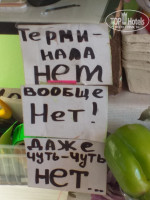 TopHotels
Терми-
нала
нет
вообще
Нет!
Даже
чуть-чуть
нет...